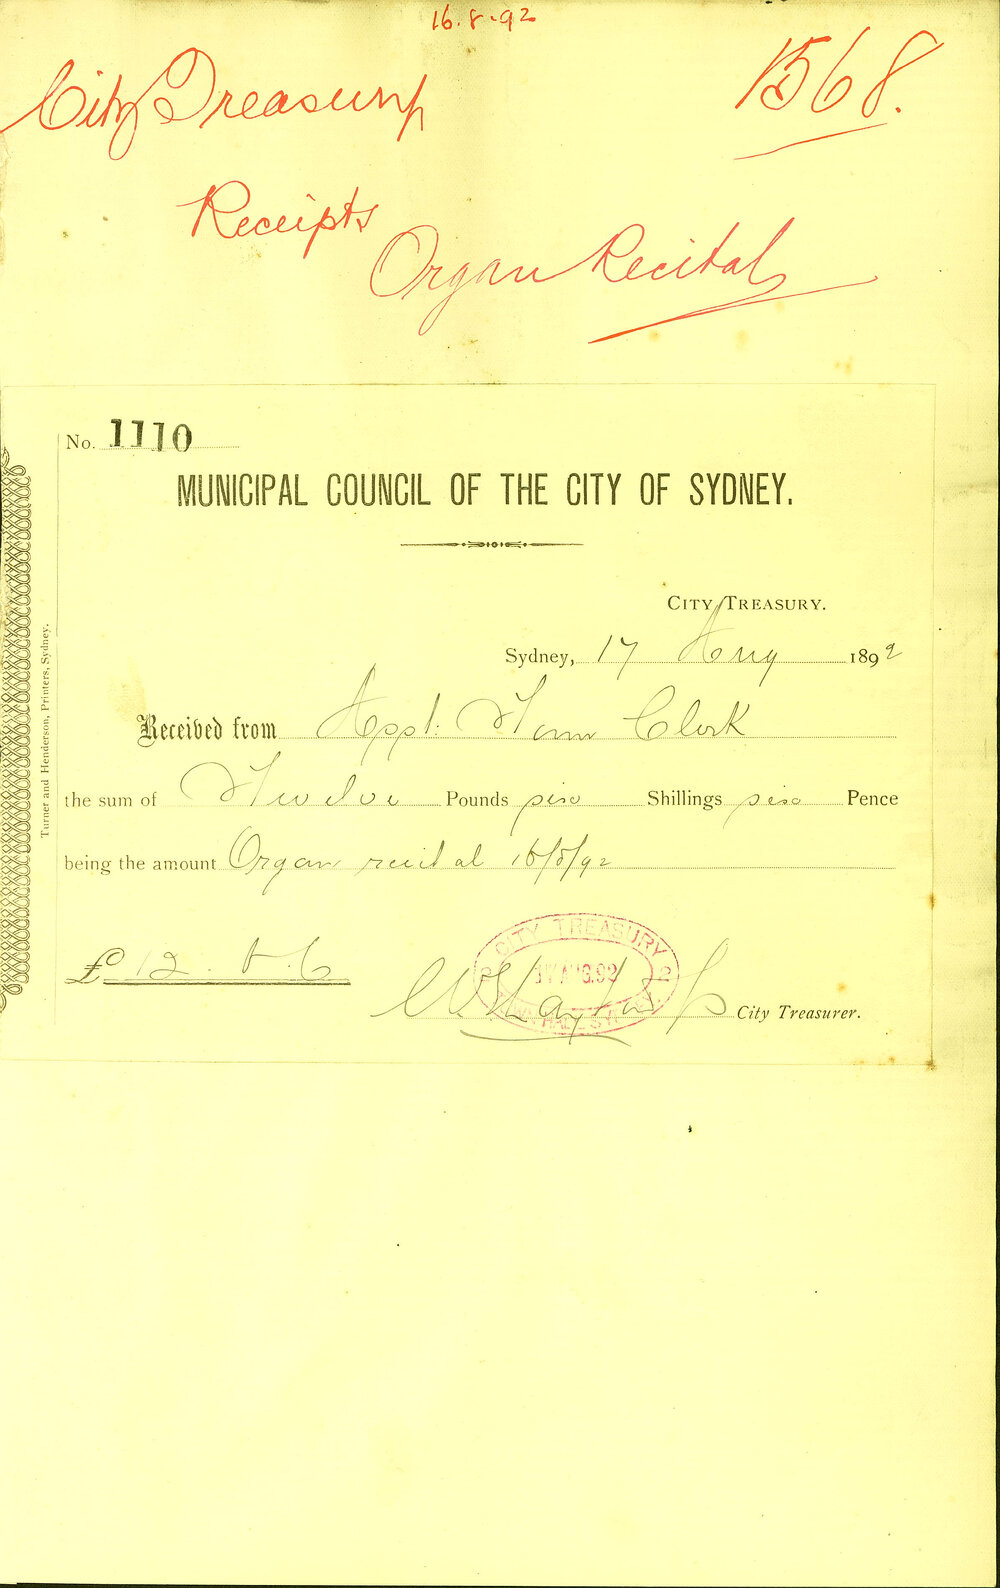 16.8.92
1568.
City Treasury
Receipts
Organ Recital
No. 1110
MUNICIPAL COUNCIL OF THE CITY OF SYDNEY.
CITY TREASURY.
Sydney, 17 Aug 1892
Received from Town Clerk
the sum of Twelve Pounds Shillings Pence
being the amount Organ recital 16/8/92
£12.
CITY TREASURY
17 AUG.92
City Treasurer.
Turner and Henderson, Printers, Sydney.